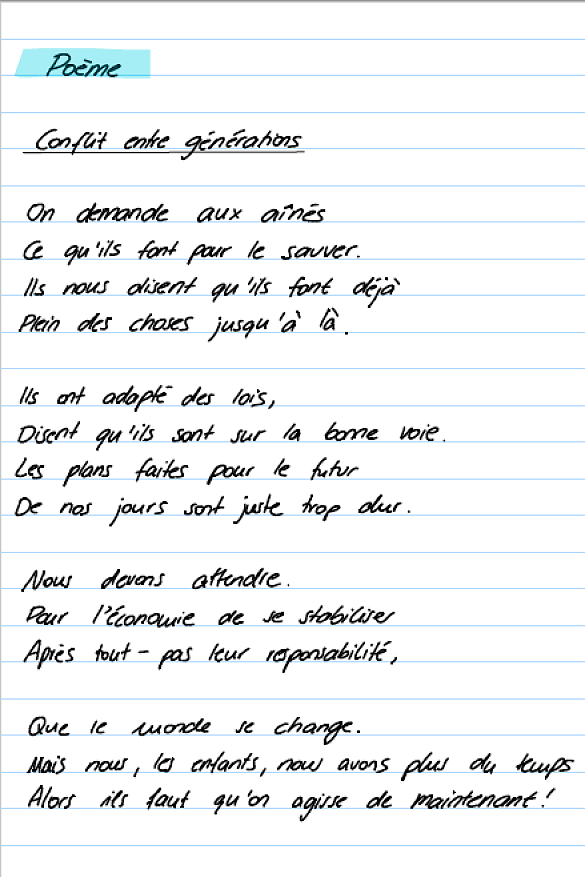 Poème
Conflit entre générations
On demande aux aînés
Ce qu'ils font pour le sauver.
Ils nous disent qu'ils font déjà
Plein des choses jusqu'à là.
Ils ont adopté des lois,
Disent qu'ils sont sur la bonne voie.
Les plans faites pour le futur
De nos jours sont juste trop dur.
Nous devons attendre.
Pour l'économie de se stabiliser
Après tout - pas leur responsabilité,
Que le monde se change.
Mais nous, les enfants, nous avons plus du temps
Alors ils faut qu'on agisse de maintenant!